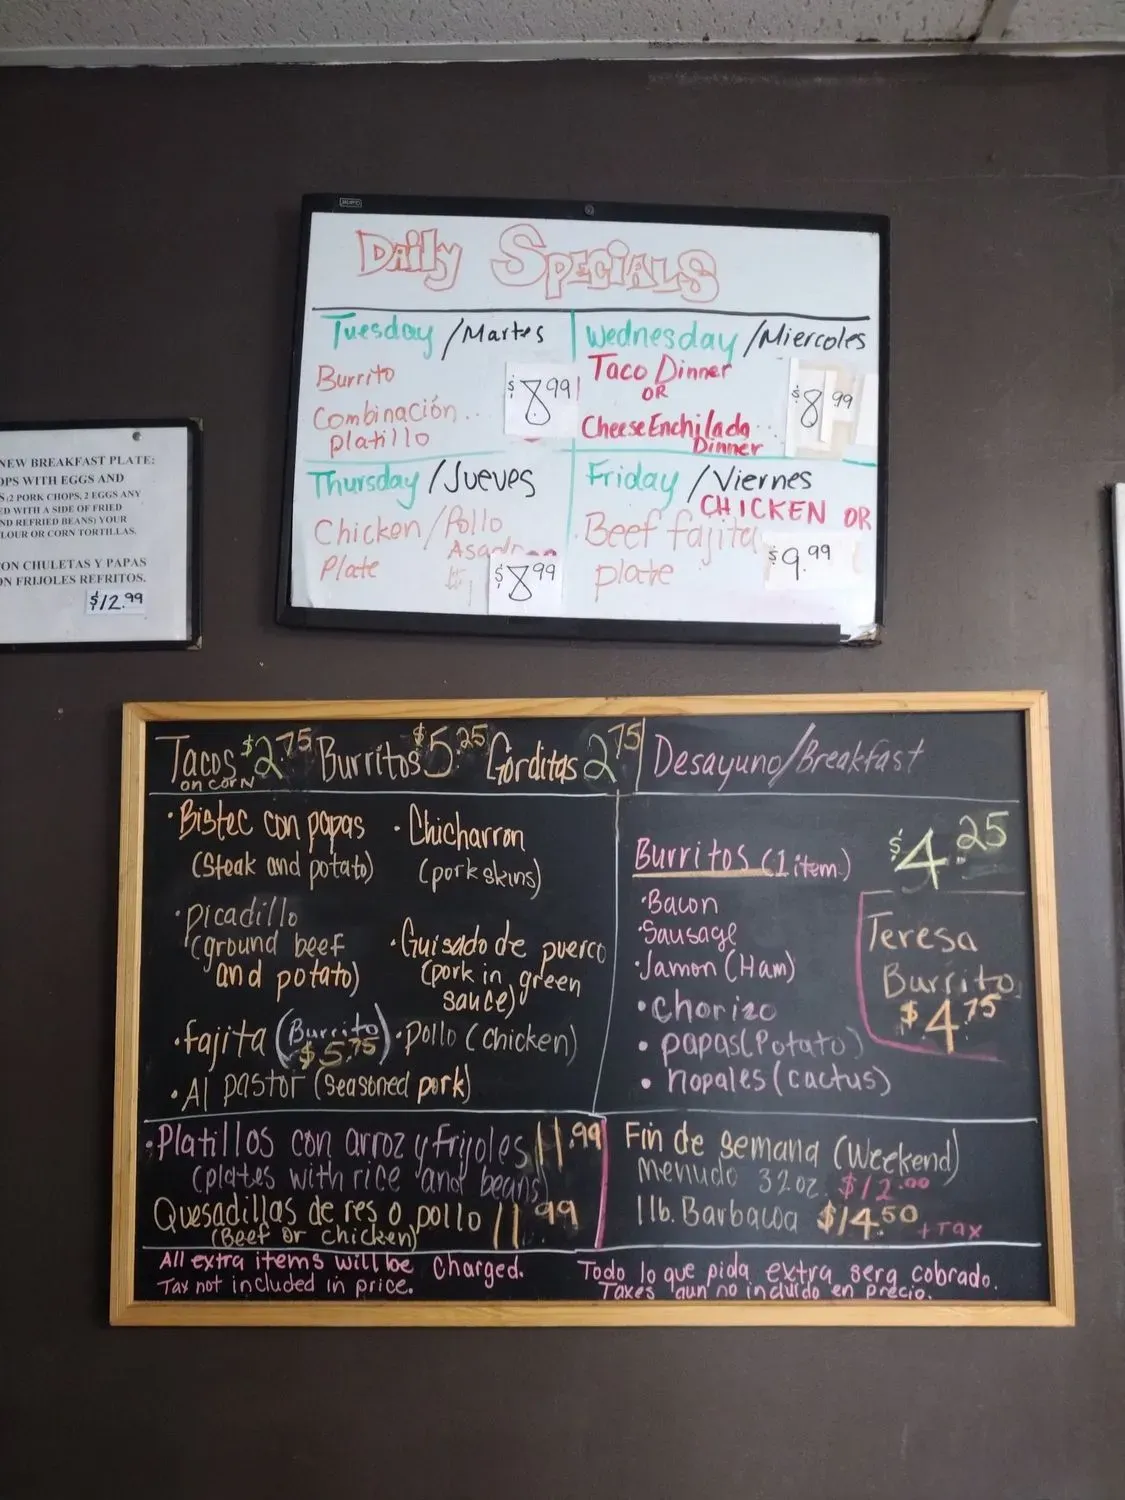 Daily Specials
Tuesday/Martes
Burrito
Combinación...
platillo
$8.99
Wednesday/Miercoles
Taco Dinner
OR
Cheese Enchilada...
Dinner
$8.99
Thursday/Jueves
Chicken/Pollo
Plate
$8.99
Friday/Viernes
CHICKEN OR
Beef fajita
plate
$9.99
NEW BREAKFAST PLATE:
OPS WITH EGGS AND
S:(2 PORK CHOPS, 2 EGGS ANY
ED WITH A SIDE OF FRIED
ND REFRIED BEANS) YOUR
LOUR OR CORN TORTILLAS.
ON CHULETAS Y PAPAS
ON FRIJOLES REFRITOS.
$12.99
Tacos $2.75 Burritos $5.25 Gorditas 2.75
on corn
• Bistec con papas
(steak and potato)
• Picadillo
(ground beef
and potato)
• fajita (Burrito
$5.75)
• Al pastor (seasoned pork)
• Chicharron
(pork skins)
• Guisado de puerco
(pork in green
sauce)
• Pollo (chicken)
Desayuno/Breakfast
Burritos (1 item) $4.25
• Bacon
• Sausage
• Jamon (Ham)
• Chorizo
• papas (Potato)
• nopales (cactus)
Teresa
Burrito
$4.75
• Platillos con arroz y frijoles 11.99
(plates with rice and beans)
Quesadillas de res o pollo 11.99
(Beef or chicken)
Fin de semana (Weekend)
menudo 32oz. $12.00
1 lb. Barbacoa $14.50 + Tax
All extra items will be charged.
Tax not included in price.
Todo lo que pida extra sera cobrado.
Taxes aun no incluido en precio.